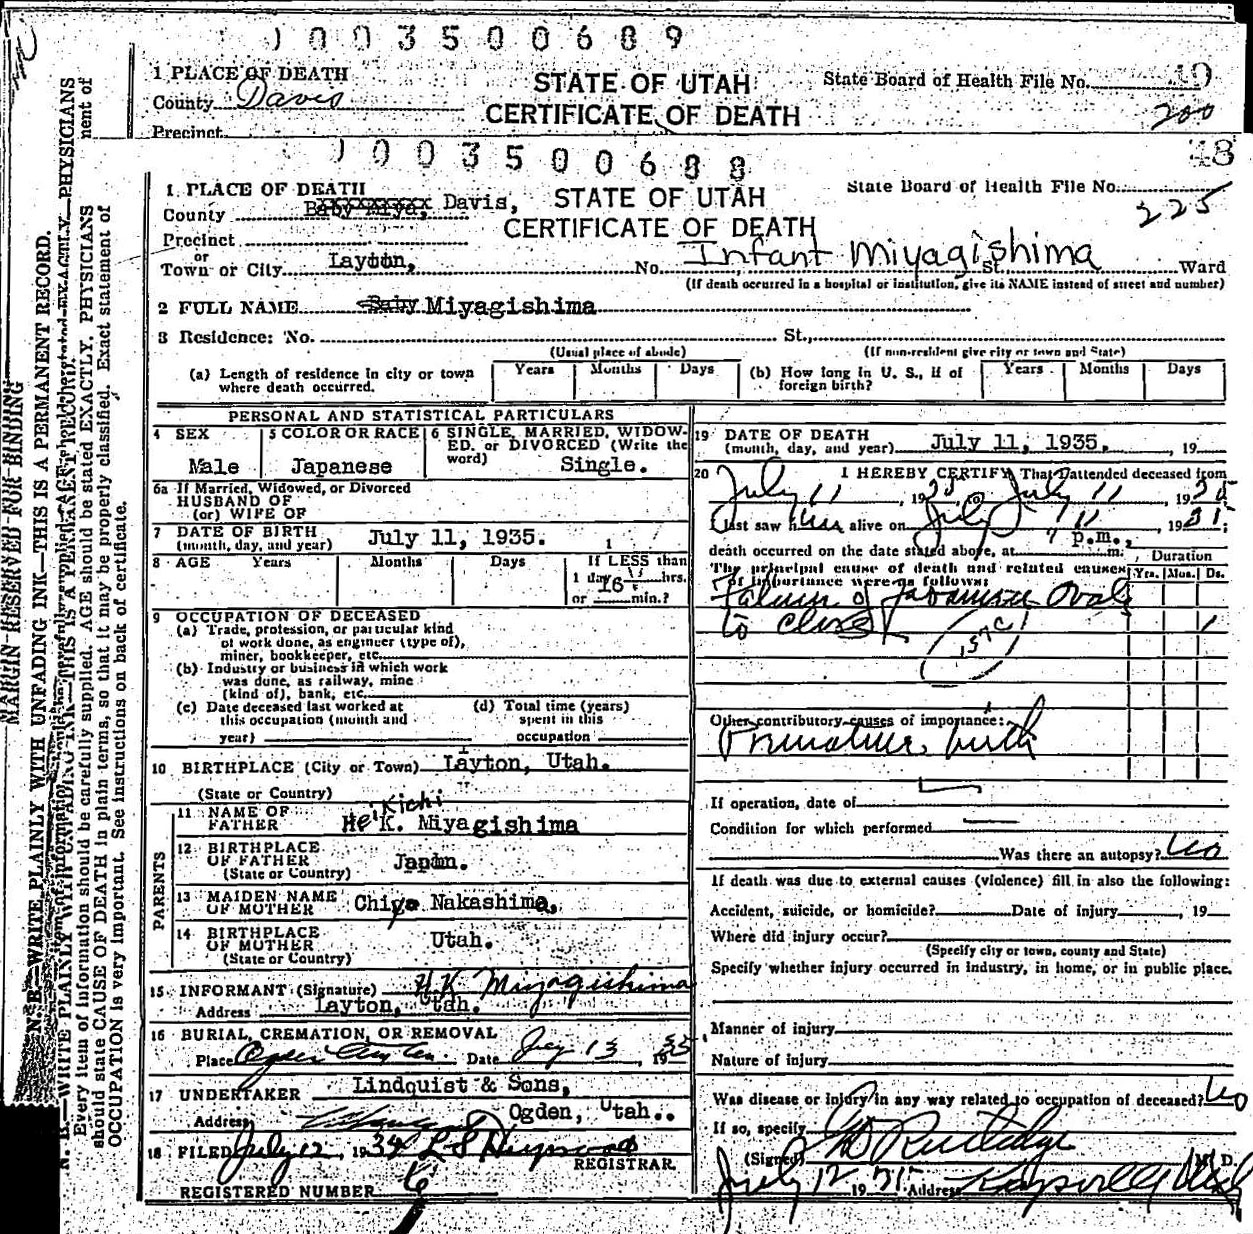 0 0 3 5 0 0 6 8 9
1 PLACE OF DEATH
STATE OF UTAH
State Board of Health File No.
County Davis
CERTIFICATE OF DEATH
200
Precinct
0 0 3 5 0 0 6 8 8
48
1 PLACE OF DEATH
STATE OF UTAH
State Board of Health File No.
County Baby Miya, Davis,
225
Precinct
CERTIFICATE OF DEATH
or
Town or City Layton, No. Infant Miyagishima St. Ward
(If death occurred in a hospital or institution, give its NAME instead of street and number)
2 FULL NAME Baby Miyagishima
3 Residence: No. St.,
(Usual place of abode) (If non-resident give city or town and State)
(a) Length of residence in city or town where death occurred. Years Months Days (b) How long in U. S., if of foreign birth? Years Months Days
PERSONAL AND STATISTICAL PARTICULARS
4 SEX
Male
5 COLOR OR RACE
Japanese
6 SINGLE, MARRIED, WIDOW-
ED. or DIVORCED (Write the
word) Single.
6a If Married, Widowed, or Divorced
HUSBAND OF
(or) WIFE OF
7 DATE OF BIRTH
(month, day, and year) July 11, 1935.
8 AGE Years Months Days If LESS than
1 day hrs.
16
or min.?
9 OCCUPATION OF DECEASED
(a) Trade, profession, or particular kind
of work done, as engineer (type of),
miner, bookkeeper, etc.
(b) Industry or business in which work
was done, as railway, mine
(kind of), bank, etc.
(c) Date deceased last worked at
this occupation (month and
year)
(d) Total time (years)
spent in this
occupation
10 BIRTHPLACE (City or Town) Layton, Utah.
(State or Country)
PARENTS
11 NAME OF
FATHER Hei Kichi K. Miyagishima
12 BIRTHPLACE
OF FATHER Japan.
(State or Country)
13 MAIDEN NAME
OF MOTHER Chiyo Nakashima,
14 BIRTHPLACE
OF MOTHER Utah.
(State or Country)
15 INFORMANT (Signature) H.K. Miyagishima
Address Layton, Utah.
16 BURIAL, CREMATION, OR REMOVAL
Place Date July 13, 1935
17 UNDERTAKER Lindquist & Sons,
Address Ogden, Utah..
18 FILED July 12, 1934
REGISTRAR
REGISTERED NUMBER 6
19 DATE OF DEATH
(month, day, and year) July 11, 1935. , 19
20 I HEREBY CERTIFY, That I attended deceased from
July 11, 1935 to July 11, 1935;
I last saw him alive on July 11, 1935;
death occurred on the date stated above, at 7 p.m., m.
The principal cause of death and related causes
of importance were as follows:
Duration
Yrs. Mos. Ds.
Failure of foramen Ovale
to close
157C
Other contributory causes of importance:
Premature birth
If operation, date of
Condition for which performed
Was there an autopsy? no
If death was due to external causes (violence) fill in also the following:
Accident, suicide, or homicide? Date of injury , 19
Where did injury occur?
(Specify city or town, county and State)
Specify whether injury occurred in industry, in home, or in public place.
Manner of injury
Nature of injury
Was disease or injury in any way related to occupation of deceased? no
If so, specify
(Signed) Rutledge M. D.
July 12 19 Address Kaysville Utah
MARGIN RESERVED FOR BINDING
N. B.—WRITE PLAINLY WITH UNFADING INK—THIS IS A PERMANENT RECORD.
Every item of information should be carefully supplied. AGE should be stated EXACTLY. PHYSICIANS
should state CAUSE OF DEATH in plain terms, so that it may be properly classified. Exact statement of
OCCUPATION is very important. See instructions on back of certificate.